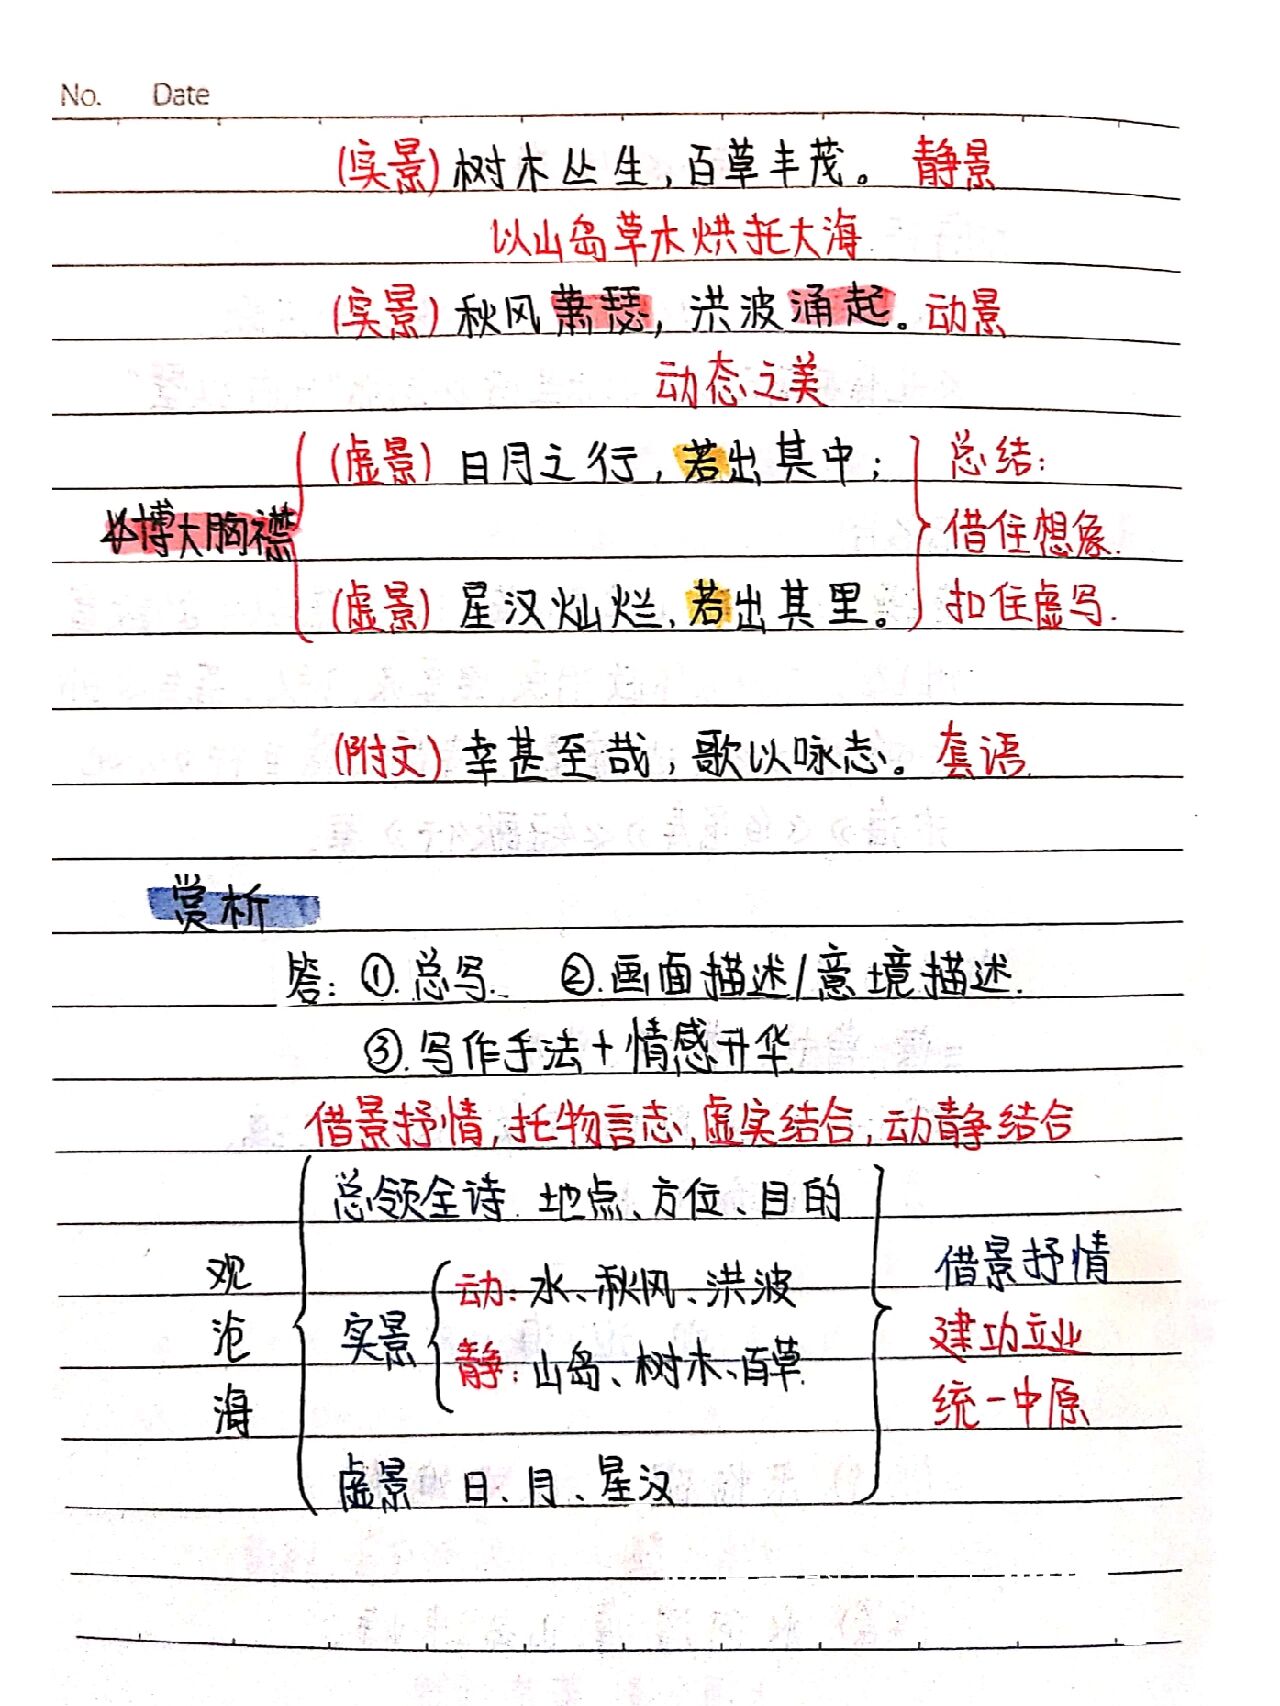 No. Date
(实景)树木丛生,百草丰茂。 静景
以山岛草木烘托大海
(实景)秋风萧瑟,洪波涌起。动景
动态之美
(虚景)日月之行,若出其中; 总结:
博大胸襟 借住想像.
(虚景)星汉灿烂,若出其里。 扣住虚写.
(附文)幸甚至哉,歌以咏志。 套语
赏析
答:①.总写. ②.画面描述/意境描述.
③.写作手法+情感升华
借景抒情,托物言志,虚实结合,动静结合
总领全诗 地点、方位、目的
观沧海 实景 动:水、秋风、洪波 借景抒情
静:山岛、树木、百草. 建功立业
统一中原
虚景 日、月、星汉